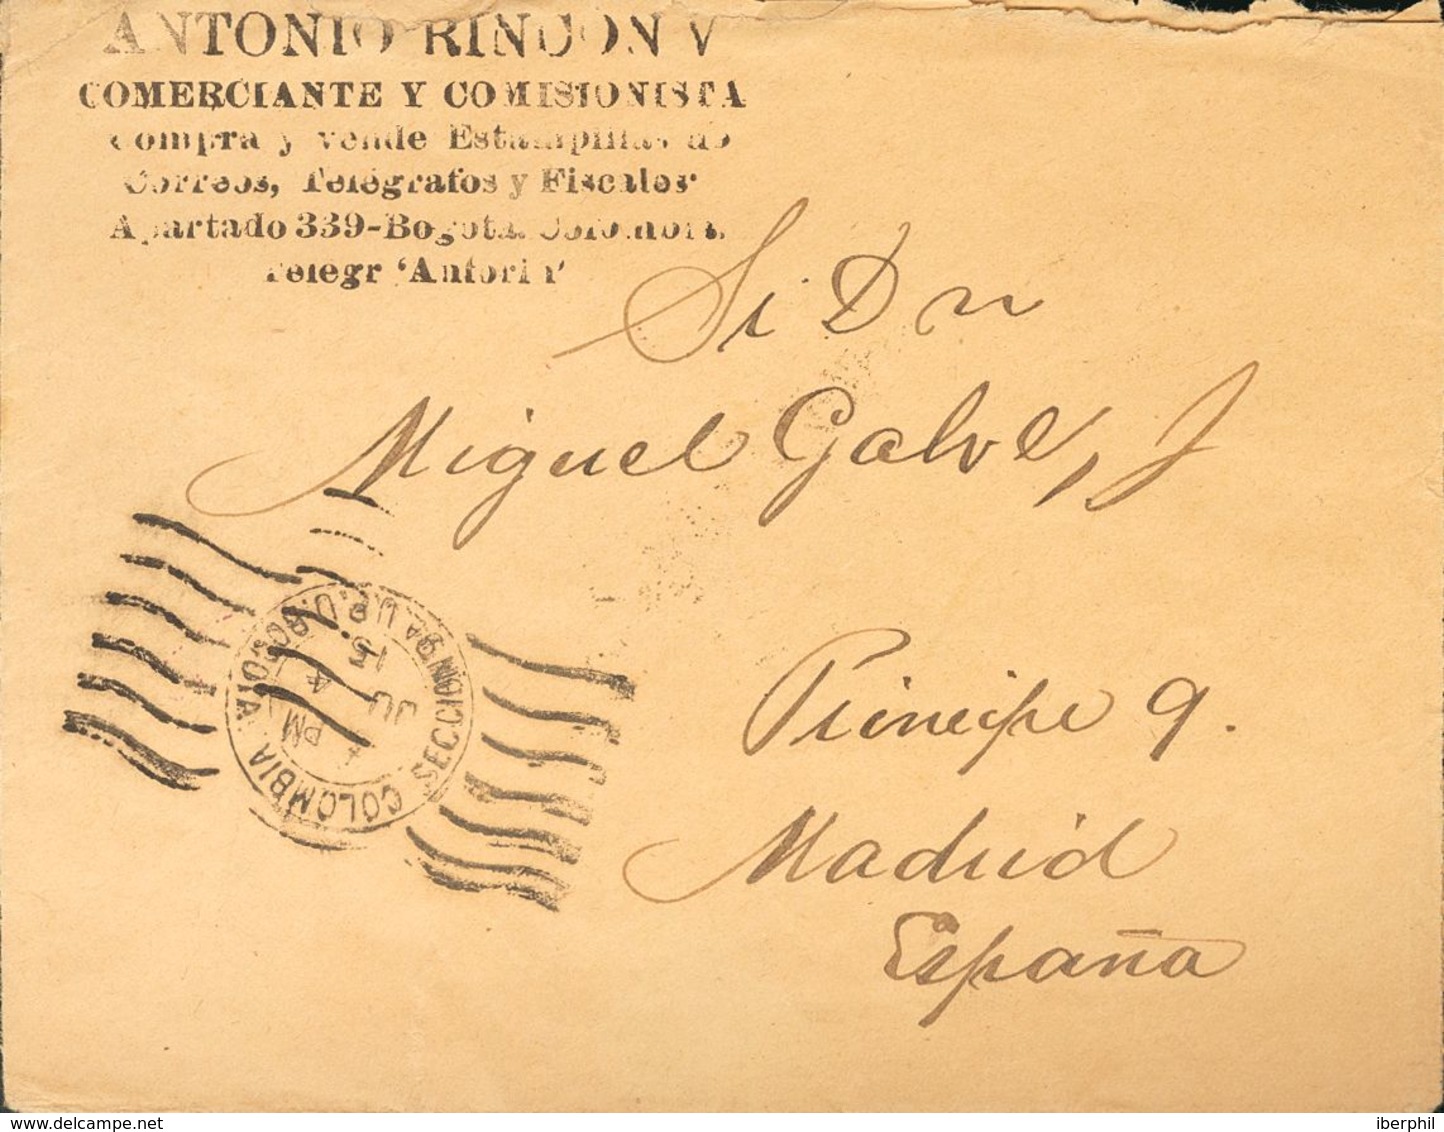 ANTONIO RINCON V
COMERCIANTE Y COMISIONISTA
Compra y vende Estampillas de
Correos, Telégrafos y Fiscales
Apartado 339-Bogotá. Colombia.
Telegr 'Antorin'
Sr Dn
Miguel Galve, J
Principe 9.
Madrid
España
COLOMBIA BOGOTA U.P.U. SECCION
JU
15
4
PM
delcampe.net
iberphil